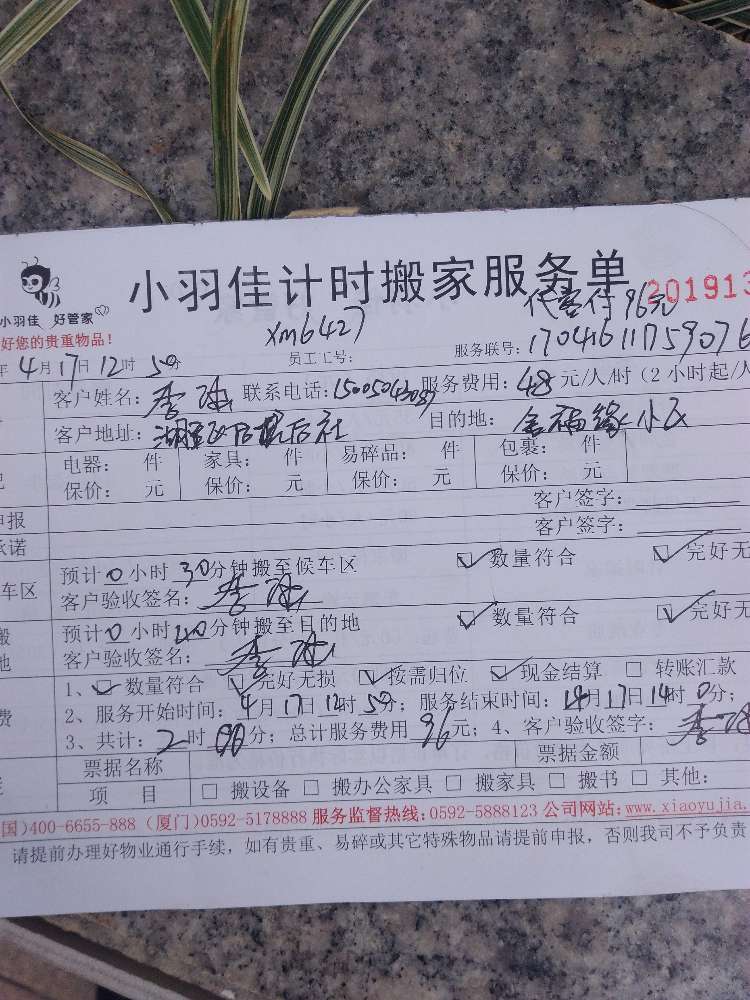 小羽佳计时搬家服务单
代客付96元
201913
小羽佳 好管家
好您的贵重物品!
xm6427
员工工号:
服务联号: 17041611759076
年4月17日12时50分
客户姓名: 李 联系电话: 服务费用:48元/人/时(2小时起/人
客户地址: 后社 目的地: 金福缘小区
电器: 件 家具: 件 易碎品: 件 包裹: 件
保价: 元 保价: 元 保价: 元 保价: 元
申报 客户签字:
承诺 客户签字:
车区 预计0小时30分钟搬至候车区 数量符合 完好无
客户验收签名: 李
搬 预计0小时40分钟搬至目的地 数量符合 完好无
地 客户验收签名: 李
1、 数量符合 完好无损 按需归位 现金结算 转账汇款
费 2、服务开始时间: 4月17日12时50分; 服务结束时间: 4月17日14时0分;
3、共计: 2时00分; 总计服务费用96元; 4、客户验收签字: 李
票据名称 票据金额
项 目 搬设备 搬办公家具 搬家具 搬书 其他:
国)400-6655-888 (厦门)0592-5178888 服务监督热线:0592-5888123 公司网站:www.xiaoyujia.
请提前办理好物业通行手续,如有贵重、易碎或其它特殊物品请提前申报,否则我司不予负责